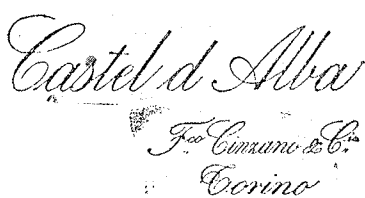 Castel d Alba
F.co Cinzano & C.ia
Torino